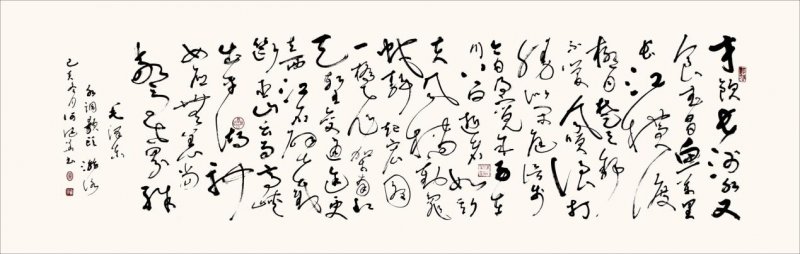 才饮长沙水又
食武昌鱼万里
长江横渡
极目楚天舒
不管风吹浪打
胜似闲庭信步
今日得宽余子在
川上曰逝者如斯
夫风樯动龟
蛇静起宏图
一桥飞架南北
天堑变通途更
立西江石壁截
断巫山云雨高峡
出平湖神
女应无恙当
惊世界殊
毛泽东
水调歌头 游泳
己亥冬月何书